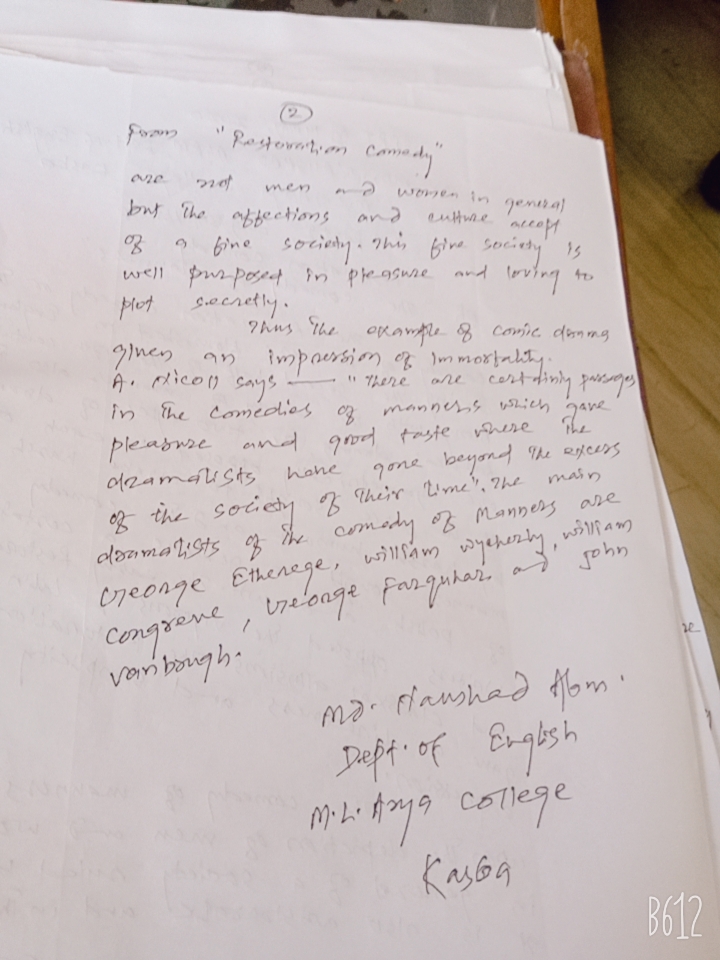 2
From "Restoration Comedy"
are not men and women in general
but the affections and culture accept
of a fine society. This fine society is
well purposed in pleasure and loving to
plot secretly.
Thus the example of comic drama
given an impression of immortality.
A. Nicoll says — "There are certainly passages
in the comedies of manners which gave
pleasure and good taste where the
dramatists have gone beyond the excess
of the society of their time". The main
dramatists of the comedy of Manners are
George Etherege, William Wycherly, William
Congreve, George Farquhar and John
Vanbrough.
Md. Naushad Alam.
Dept. of English
M.L. Arya College
Kasba
re
B612